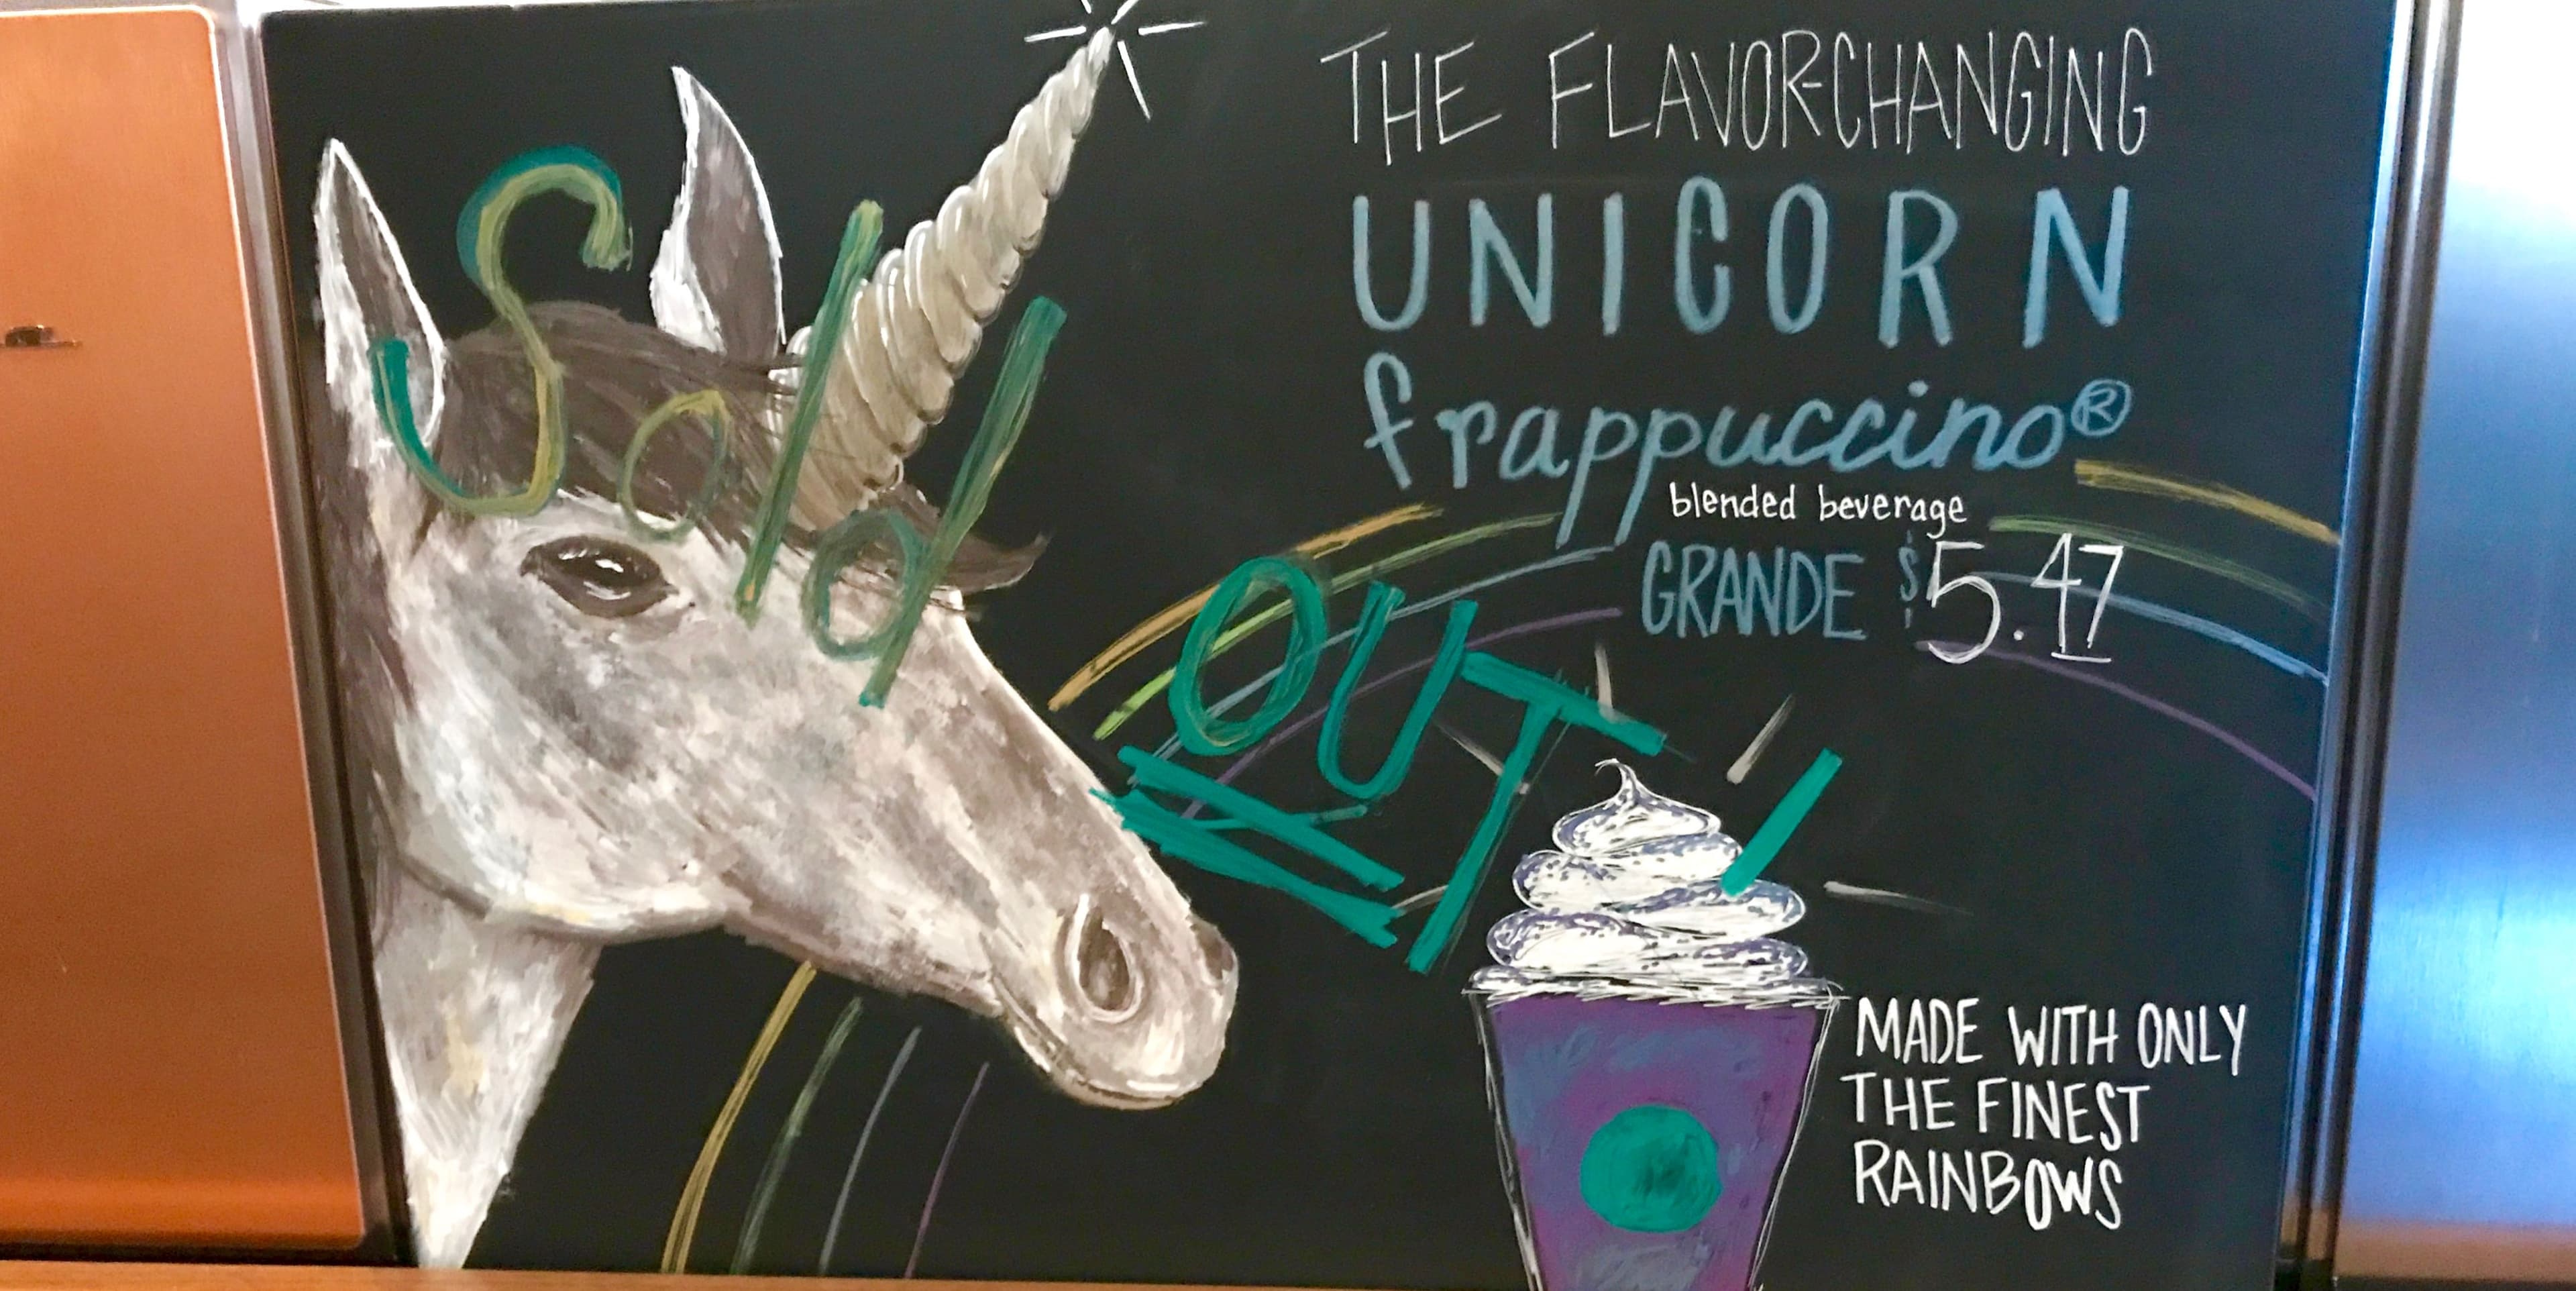 THE FLAVOR-CHANGING
UNICORN
frappuccino®
blended beverage
GRANDE $5.47
Sold
OUT!
MADE WITH ONLY
THE FINEST
RAINBOWS